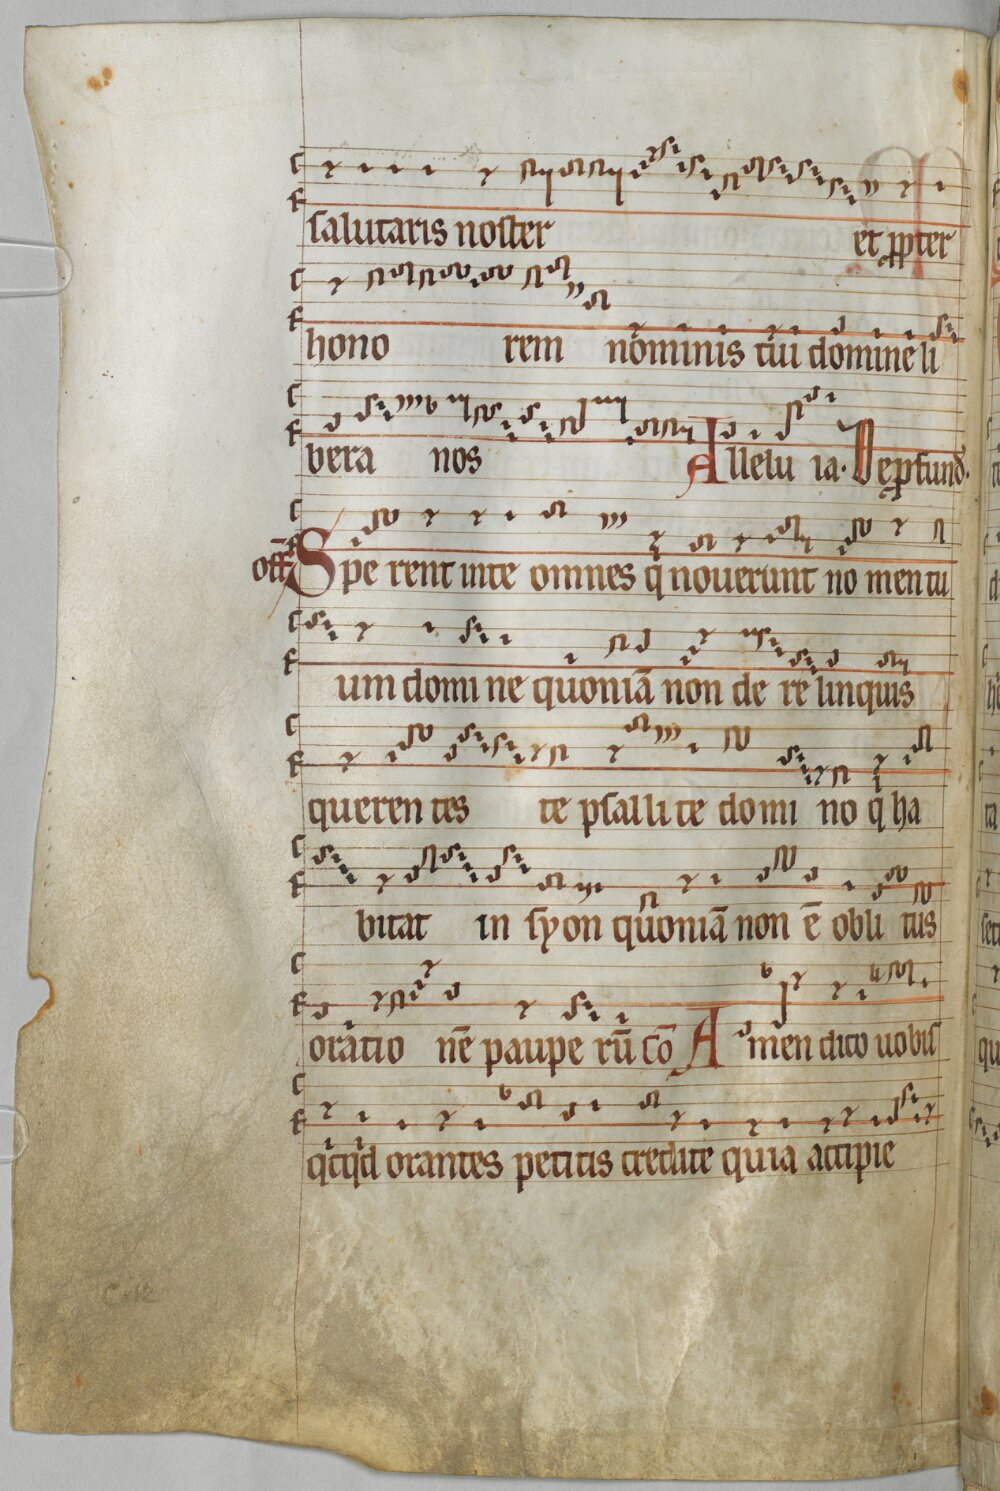 salutaris noster et ꝓpter
hono rem nominis tui domine li
vera nos Allelu ia. De ꝓfund.
off̄ Spe rent in te omnes q̄ noverunt no men tu
um domi ne quoniā non de re linquis
queren tes te psalli te domi no q̄ ha
bitat in syon quoniā non ē obli tus
oratio nē paupe rū Cō Amen dico uobis
qͥcqͥd orantes petitis credite quia accipie